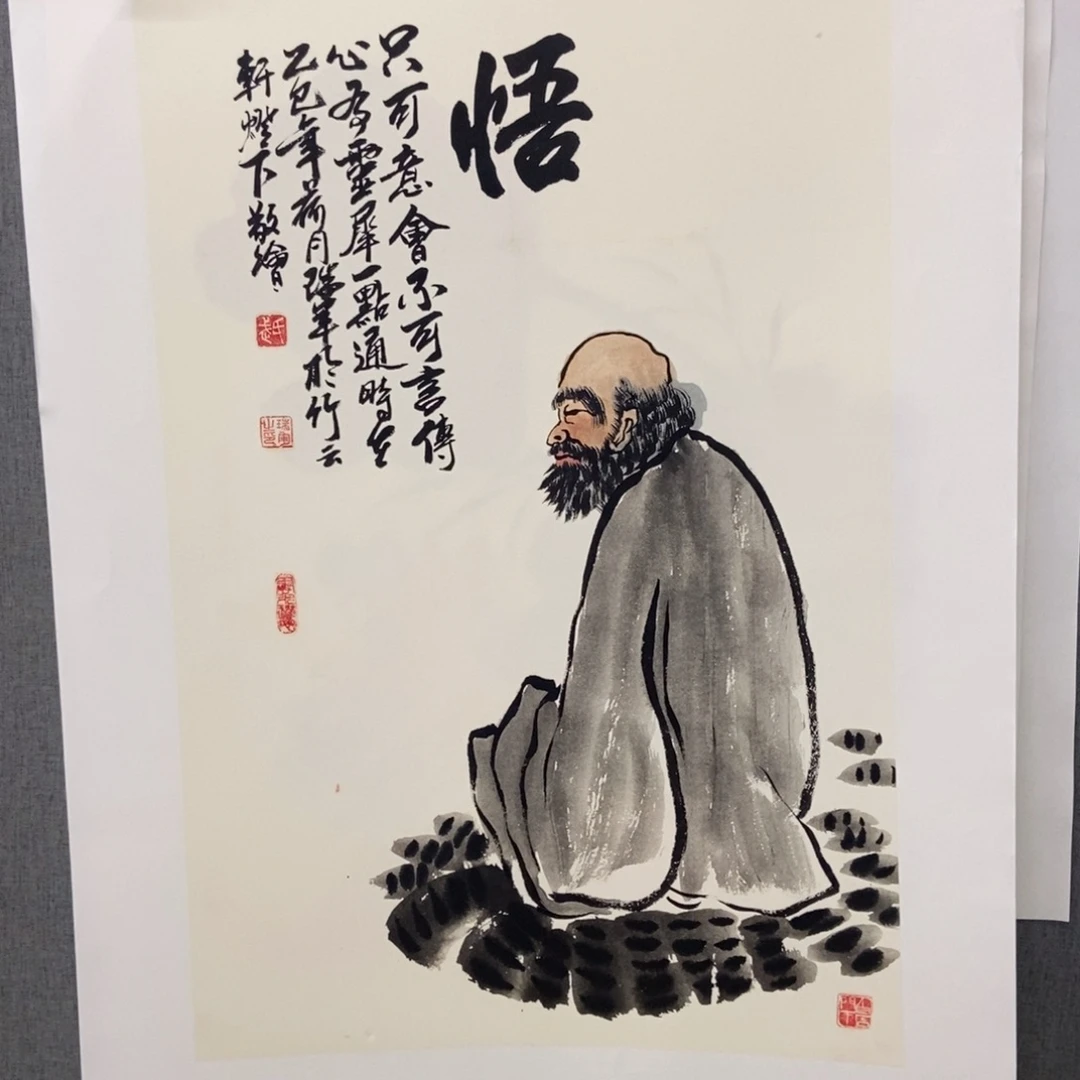 悟
只可意會不可言傳
心有靈犀一點通時在
乙巳年荷月瑞年於竹云
軒燈下敬繪